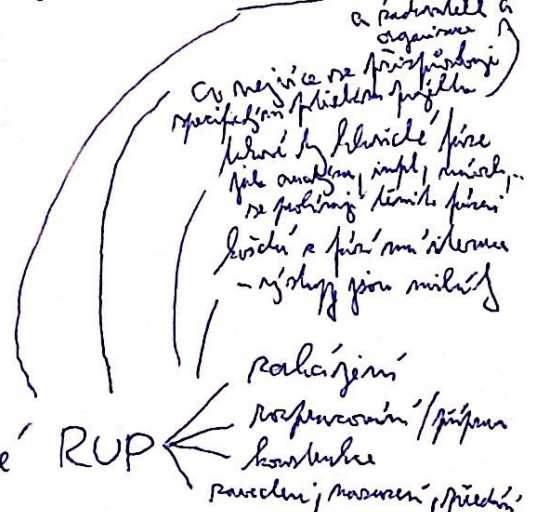 a zadavatele a
organizace
co nejvíce se přizpůsobují
specifickým potřebám projektu
takové ty klasické fáze
jako analýza, impl, návrh,...
se prolínají těmito fázemi
každá z fází má iterace
- výstupy jsou milníky
zahájení
rozpracování/příprava
RUP
konstrukce
zavedení, nasazení, předání